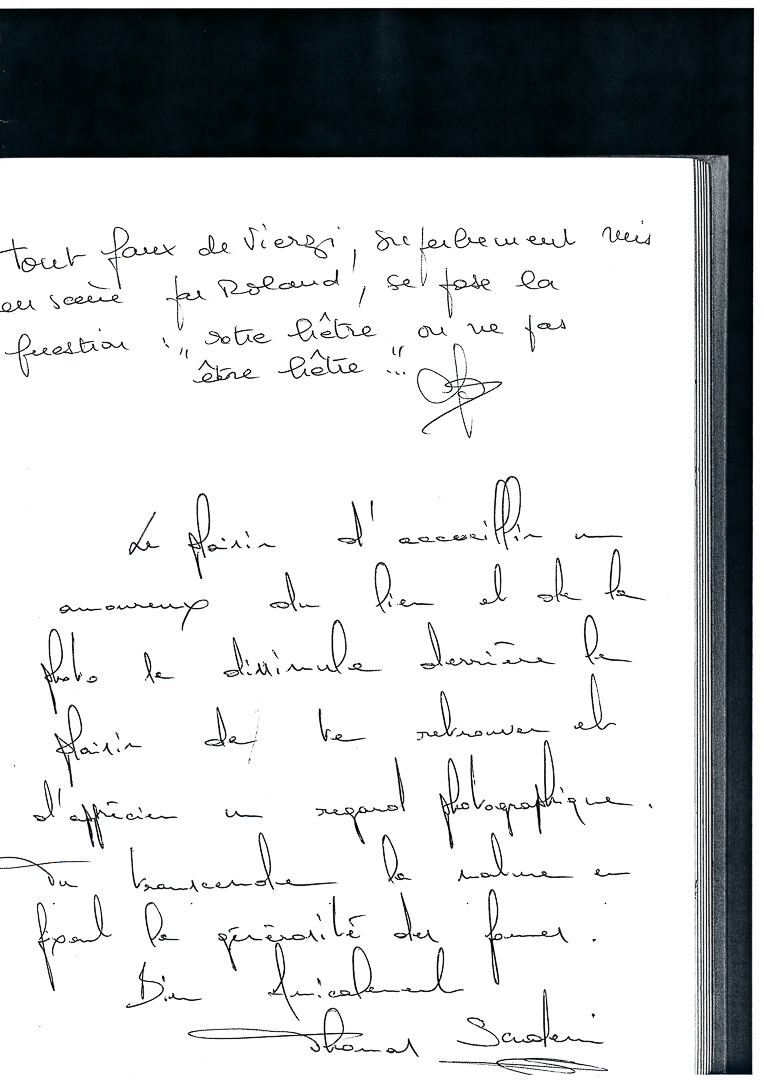 tout faux de Vierzi, superbement mis
en scène par Roland, se pose la
question : " hêtre ou ne pas
être hêtre "...
Le plaisir d'accueillir un
amoureux du lieu et de la
photo se dissimule derrière le
plaisir de te retrouver et
d'apprécier un regard photographique.
Tu transcendes la nature en
fixant la générosité des formes.
Bien Amicalement
Thomas